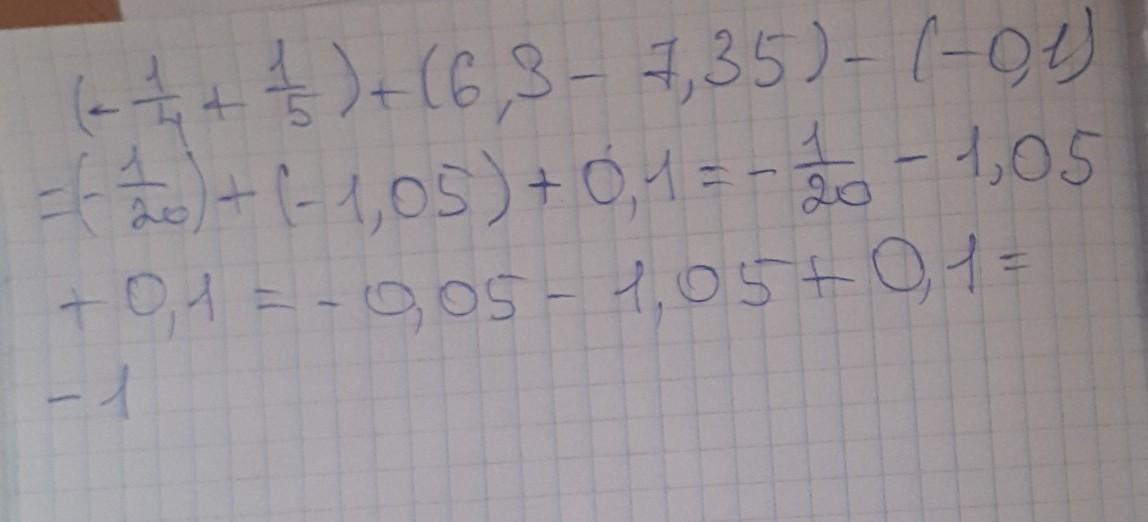 (-1/4 + 1/5) + (6,3 - 7,35) - (-0,1)
= (-1/20) + (-1,05) + 0,1 = -1/20 - 1,05
+ 0,1 = -0,05 - 1,05 + 0,1 =
-1